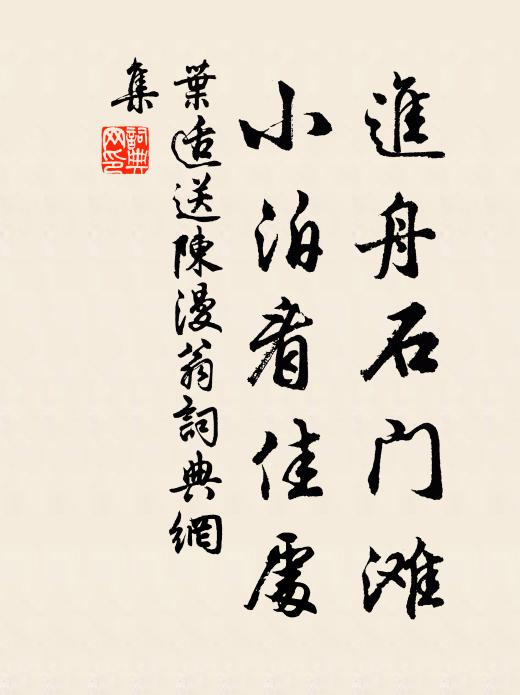 進舟石门滩
小泊看佳處
葉适送陳漫翁詞典網
集
詞典
网印